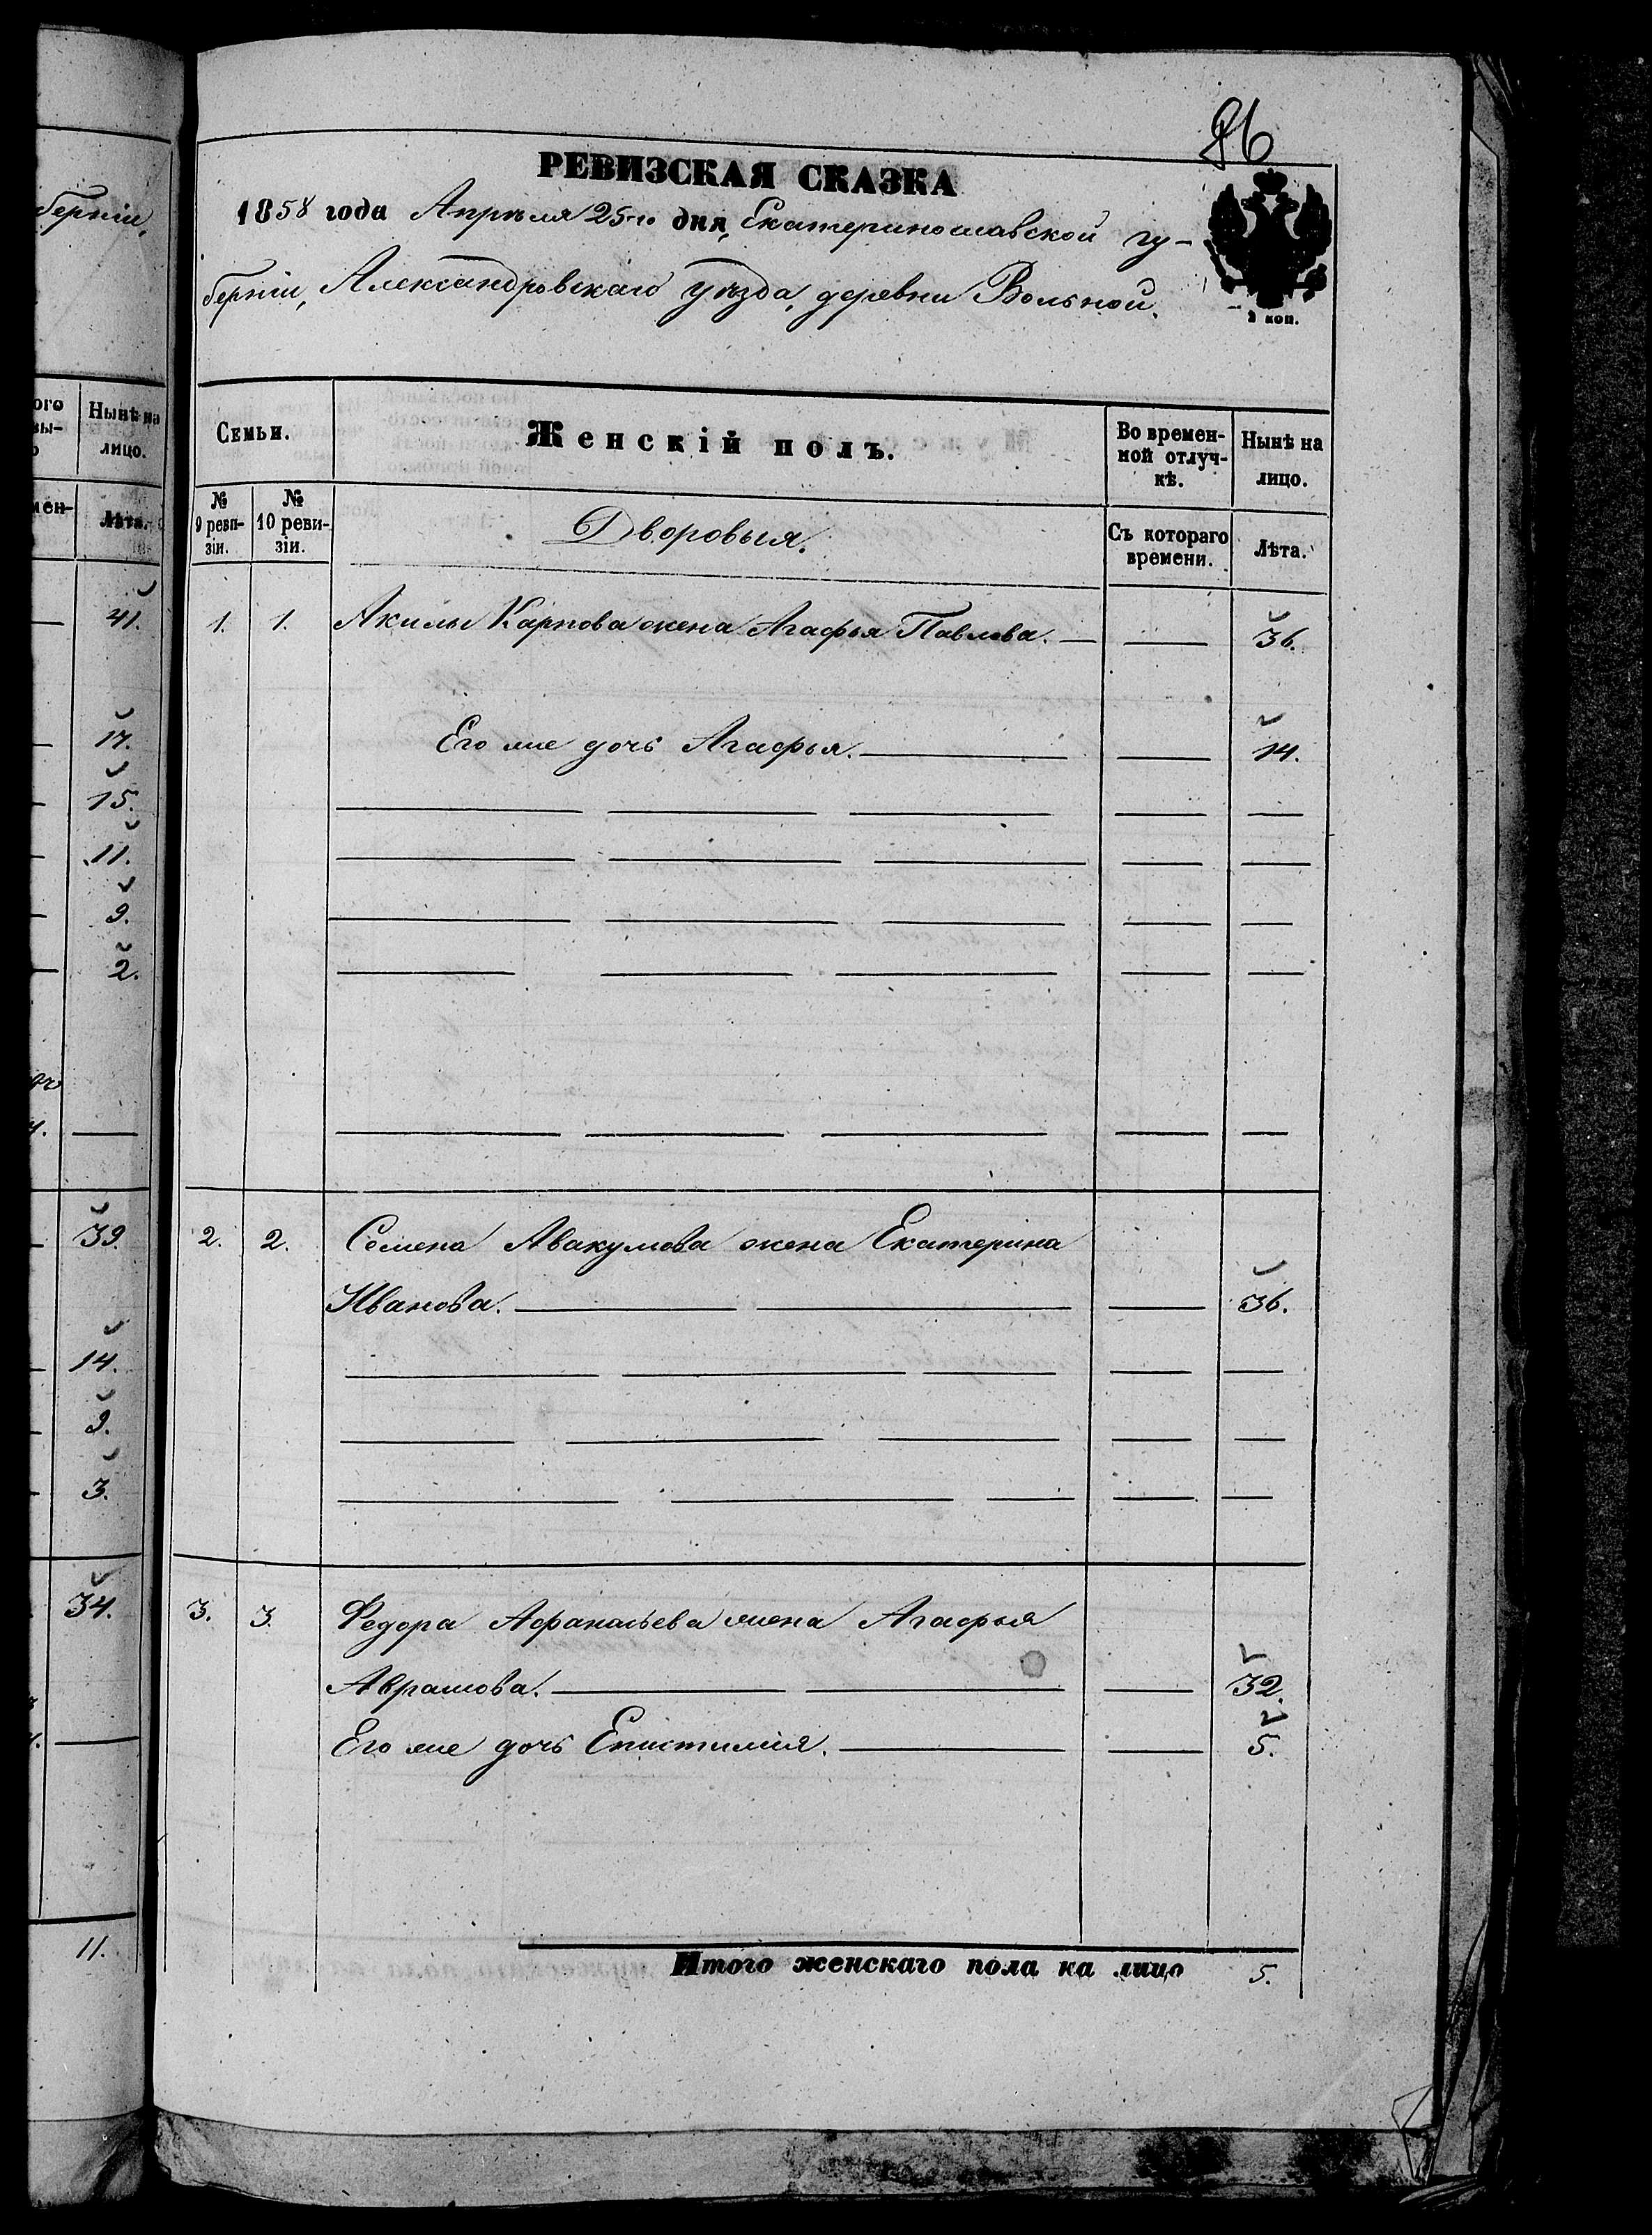 берніи,
ого
Нынѣ на
вы-
лицо.
мен-
Лѣта.
41.
17.
15.
11.
9.
2.
39.
14.
9.
3.
34.
11.
86
РЕВИЗСКАЯ СКАЗКА
1858 года Апрѣля 25-го дня, Екатеринославской гу-
берніи, Александровскаго уѣзда, деревни Вольной.
2 коп.
Семьи.
Женскій полъ.
Во времен-
ной отлуч-
кѣ.
Нынѣ на
лицо.
№
9 реви-
зіи.
№
10 реви-
зіи.
Дворовыя.
Съ котораго
времени.
Лѣта.
1. 1. Акилы Карпова жена Агафья Павлова. 36.
Его же дочь Агафья. 14.
2. 2. Семена Авакумова жена Екатерина
Иванова. 36.
3. 3. Федора Афанасьева жена Агафья
Аврамова. 32.
Его же дочь Епистимия. 5.
Итого женскаго пола на лицо 5.